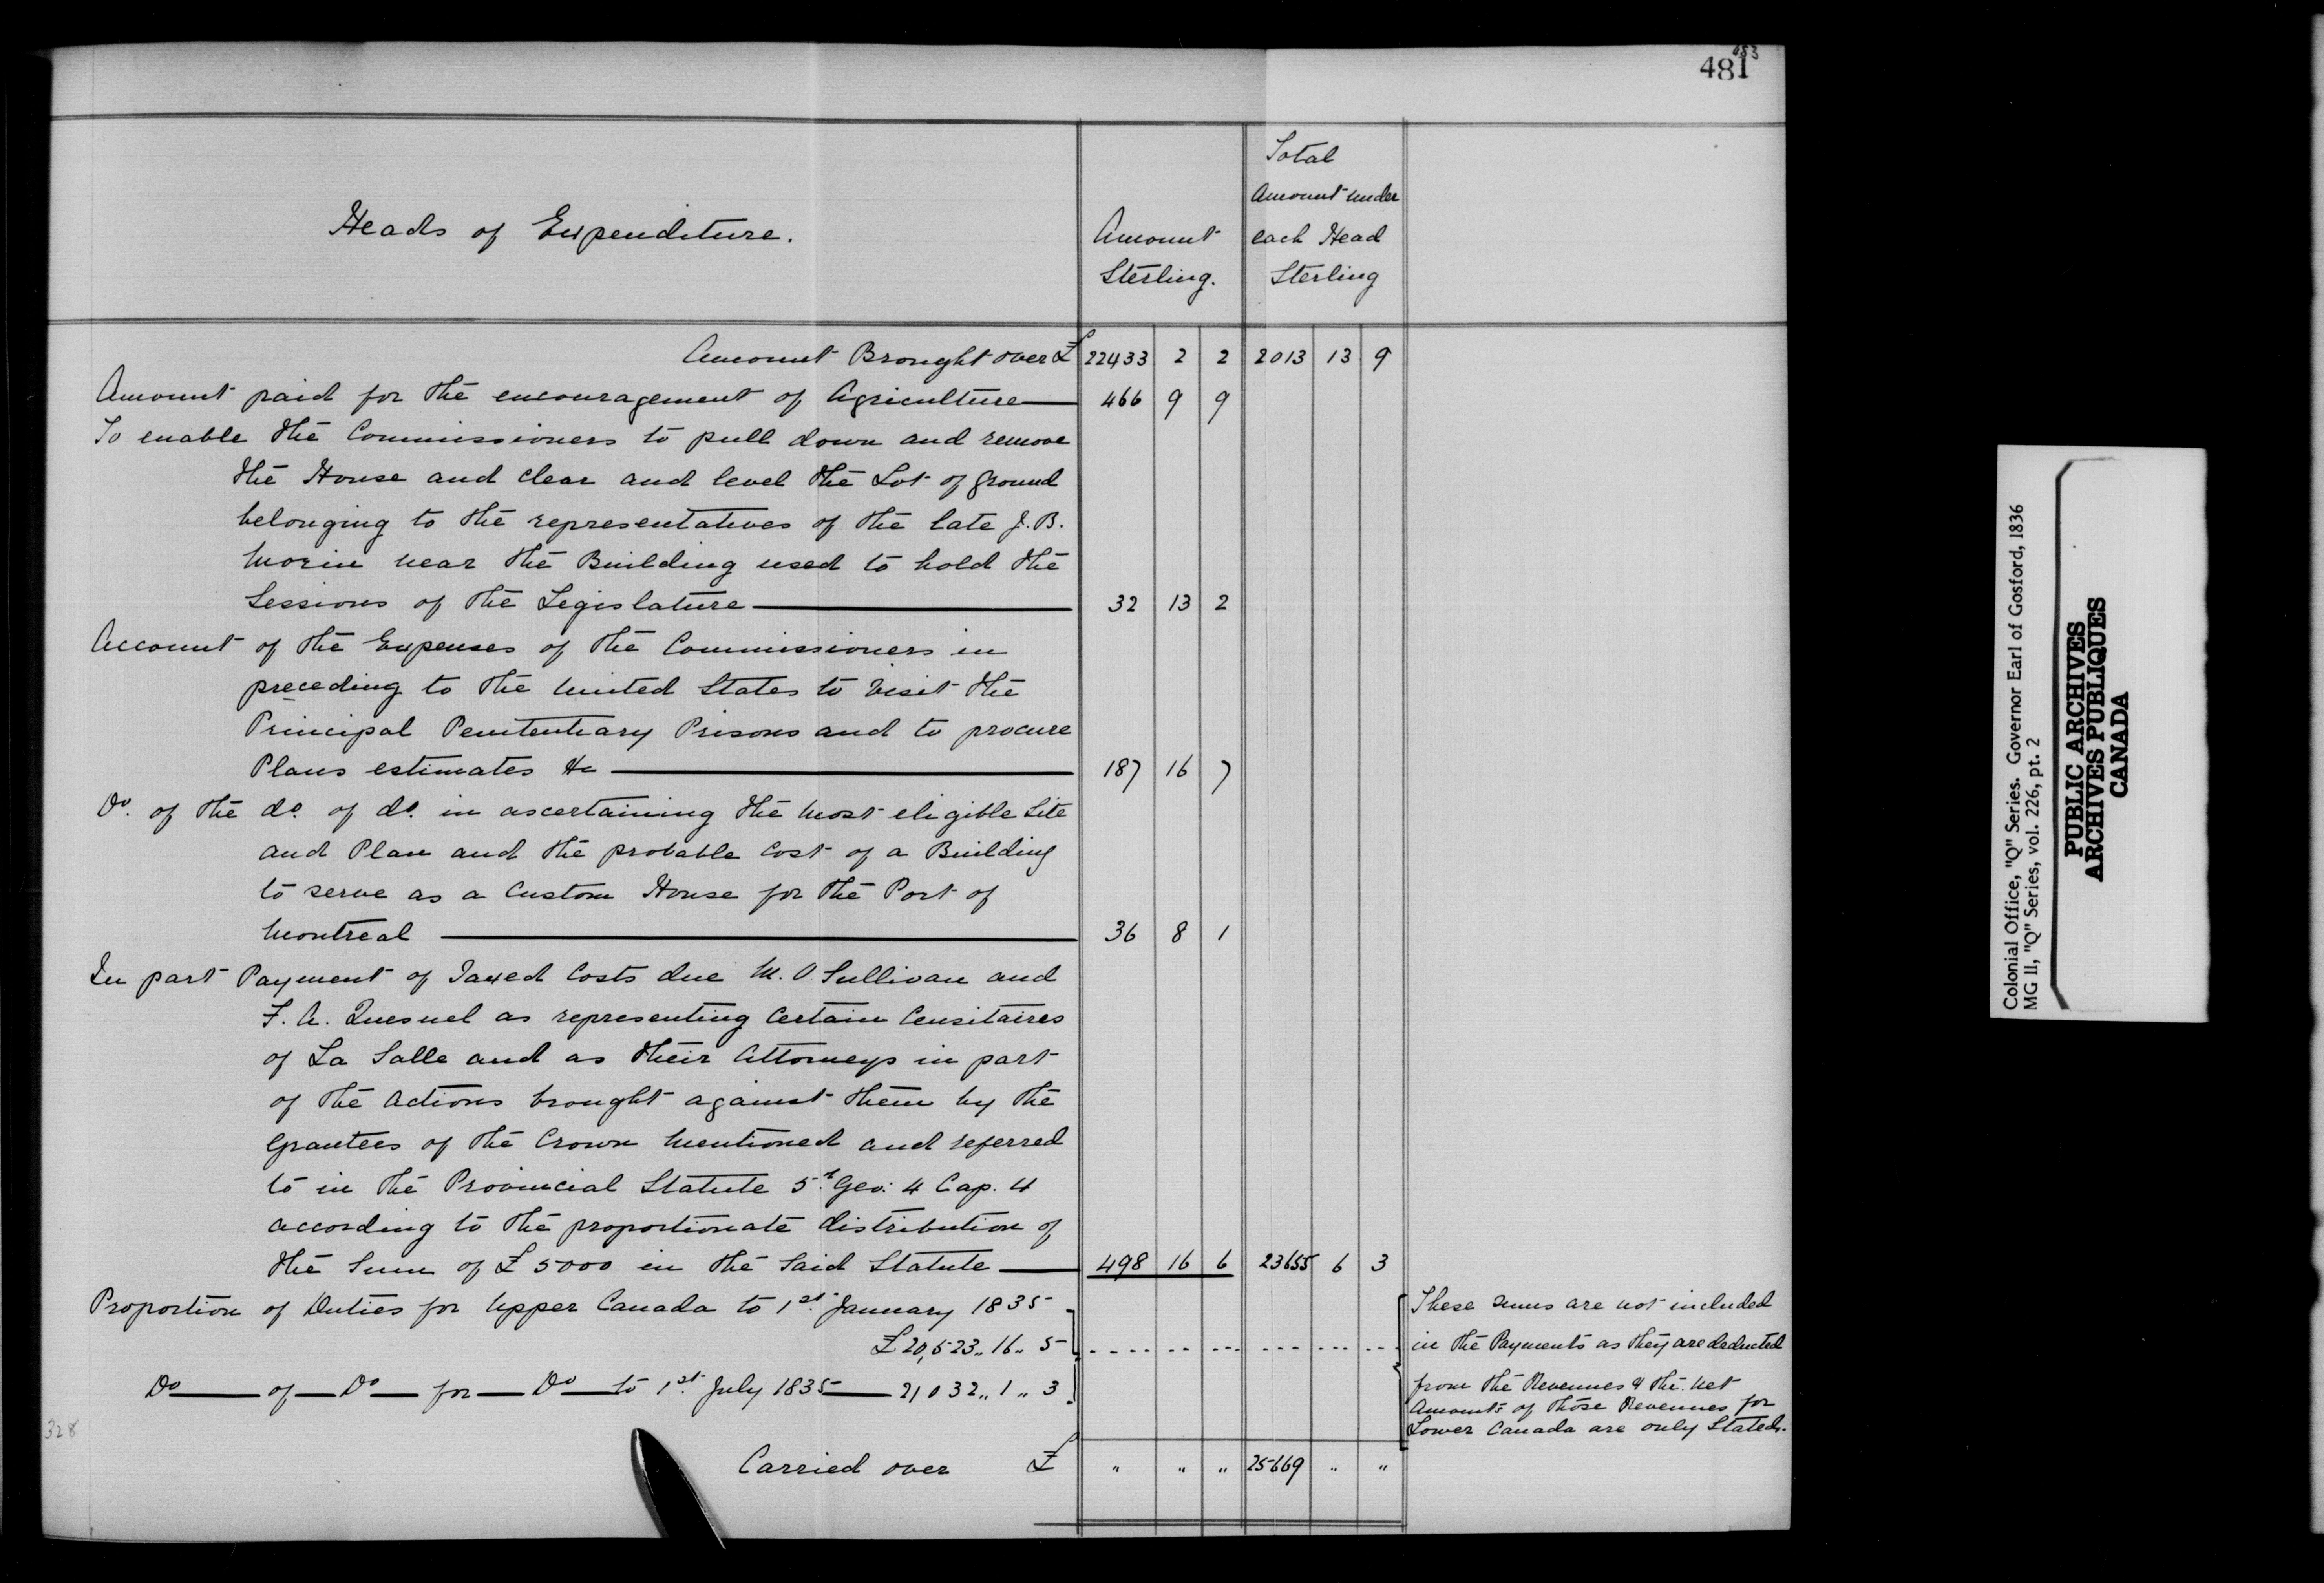 653
481
Heads of Expenditure.
Amount Sterling.
Total Amount under each Head Sterling
Amount Brought over £ 22433 2 2 2013 13 9
Amount paid for the encouragement of Agriculture — 466 9 9
To enable the Commissioners to pull down and remove
the House and clear and level the Lot of ground
belonging to the representatives of the late J. B.
Morin near the Building used to hold the
Sessions of the Legislature — 32 13 2
Account of the Expenses of the Commissioners in
preceding to the United States to visit the
Principal Penitentiary Prisons and to procure
Plans estimates &c — 187 16 7
Do. of the do. of do. in ascertaining the most eligible Site
and Plan and the probable Cost of a Building
to serve as a Custom House for the Port of
Montreal — 36 8 1
In part Payment of Taxed Costs due M. O Sullivan and
F. A. Quesnel as representing Certain Censitaires
of La Salle and as their Attorneys in part
of the actions brought against them by the
Grantees of the Crown mentioned and referred
to in the Provincial Statute 5th Geo: 4 Cap. 4
according to the proportionate distribution of
the Sum of £ 5000 in the said Statute — 498 16 6 23655 6 3
Proportion of Duties for Upper Canada to 1st January 1835
£ 20,523 " 16 " 5
Do — of — Do — for — Do — to 1st July 1835 — 21032 " 1 " 3
These sums are not included
in the Payments as they are deducted
from the Revenues & the net
Amounts of those Revenues for
Lower Canada are only Stated.
328
Carried over £ " " " 25669 " "
Colonial Office, "Q" Series. Governor Earl of Gosford, 1836
MG 11, "Q" Series, vol. 226, pt. 2
PUBLIC ARCHIVES
ARCHIVES PUBLIQUES
CANADA